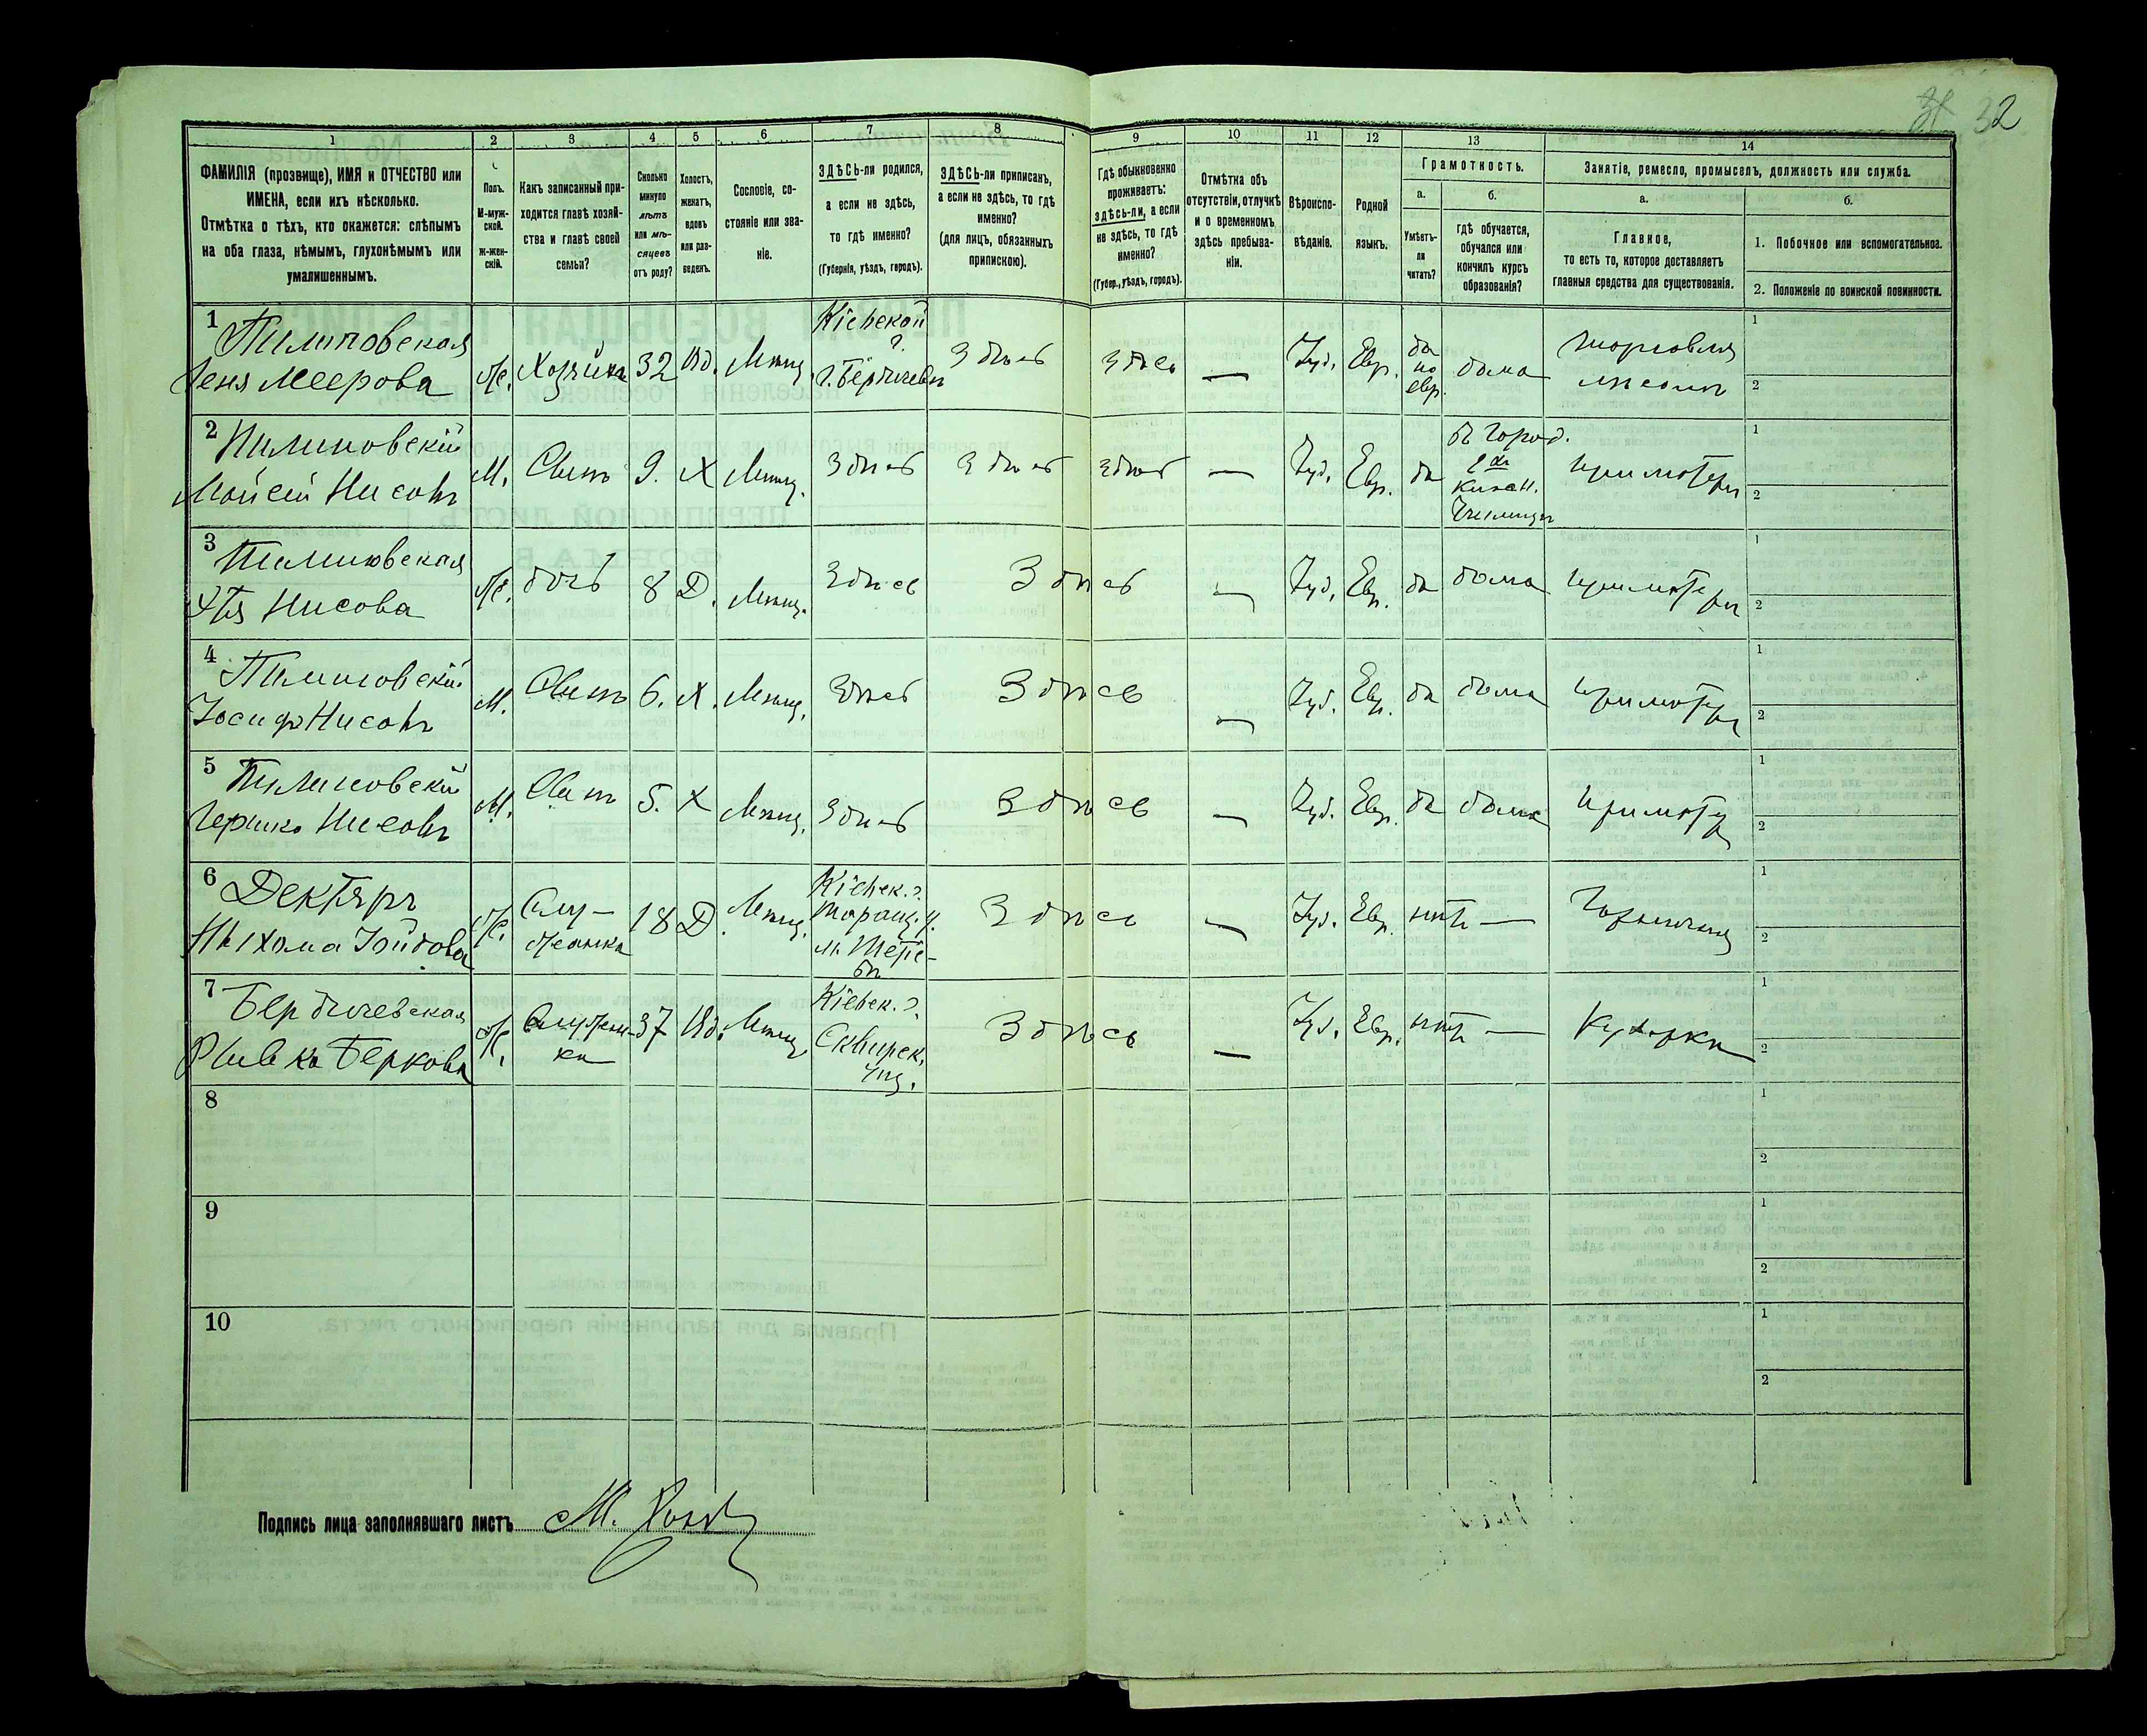 31 32
1
2
3
4
5
6
7
8
9
10
11
12
13
14
ФАМИЛІЯ (прозвище), ИМЯ и ОТЧЕСТВО или
ИМЕНА, если ихъ нѣсколько.
Отмѣтка о тѣхъ, кто окажется: слѣпымъ
на оба глаза, нѣмымъ, глухонѣмымъ или
умалишеннымъ.
Полъ.
М-муж-
ской.
Ж-жен-
скій.
Какъ записанный при-
ходится главѣ хозяй-
ства и главѣ своей
семьи?
Сколько
минуло
лѣтъ
или мѣ-
сяцевъ
отъ роду?
Холостъ,
женатъ,
вдовъ
или раз-
веденъ.
Сословіе, со-
стояніе или зва-
ніе.
ЗДѢСЬ-ли родился,
а если не здѣсь,
то гдѣ именно?
(Губернія, уѣздъ, городъ).
ЗДѢСЬ-ли приписанъ,
а если не здѣсь, то гдѣ
именно?
(для лицъ, обязанныхъ
припискою).
Гдѣ обыкновенно
проживаетъ:
здѣсь-ли, а если
не здѣсь, то гдѣ
именно?
(Губер., уѣздъ, городъ).
Отмѣтка объ
отсутствіи, отлучкѣ
и о временномъ
здѣсь пребыва-
ніи.
Вѣроиспо-
вѣданіе.
Родной
языкъ.
Грамотность.
а.
Умѣетъ-
ли
читать?
б.
гдѣ обучается,
обучался или
кончилъ курсъ
образованія?
Занятіе, ремесло, промыселъ, должность или служба.
а.
Главное,
то есть то, которое доставляетъ
главныя средства для существованія.
б.
1. Побочное или вспомогательное.
2. Положеніе по воинской повинности.
1 Пилиповская
Геня Меерова
Ж.
Хозяйка
32
Вд.
Мѣщ.
Кіевской
г. Бердичевъ
Здѣсь
Здѣсь
—
Іуд.
Евр.
да
по
евр.
дома
торговля
мясомъ
1
2
2 Пилиповскій
Мойсей Нисовъ
М.
Сынъ
9.
Х
Мѣщ.
Здѣсь
Здѣсь
Здѣсь
—
Іуд.
Евр.
да
въ Город.
2хъ
Училищѣ
при матери
1
2
3 Пилиповская
Нисова
Ж.
дочь
8
Д.
Мѣщ.
Здѣсь
Здѣсь
—
Іуд.
Евр.
да
дома
при матери
1
2
4 Пилиповскій
Іосифъ Нисовъ
М.
Сынъ
6.
Х.
Мѣщ.
Здѣсь
Здѣсь
—
Іуд.
Евр.
да
дома
при матери
1
2
5 Пилиповскій
Гершко Нисовъ
М.
Сынъ
5.
Х
Мѣщ.
Здѣсь
Здѣсь
—
Іуд.
Евр.
да
дома
при матери
1
2
6 Дектяръ
Ж.
Слу-
жанка
18
Д.
Мѣщ.
Кіевск. г.
Таращ. у.
Здѣсь
—
Іуд.
Евр.
нѣтъ
—
Горничная
1
2
7 Бердичевская
Ривка Беркова
Ж.
Служан-
ка
37
Вд.
Мѣщ.
Кіевск. г.
Сквирск.
уѣз.
Здѣсь
—
Іуд.
Евр.
нѣтъ
—
Кухарка
1
2
8
1
2
9
1
2
10
1
2
Подпись лица заполнявшаго листъ